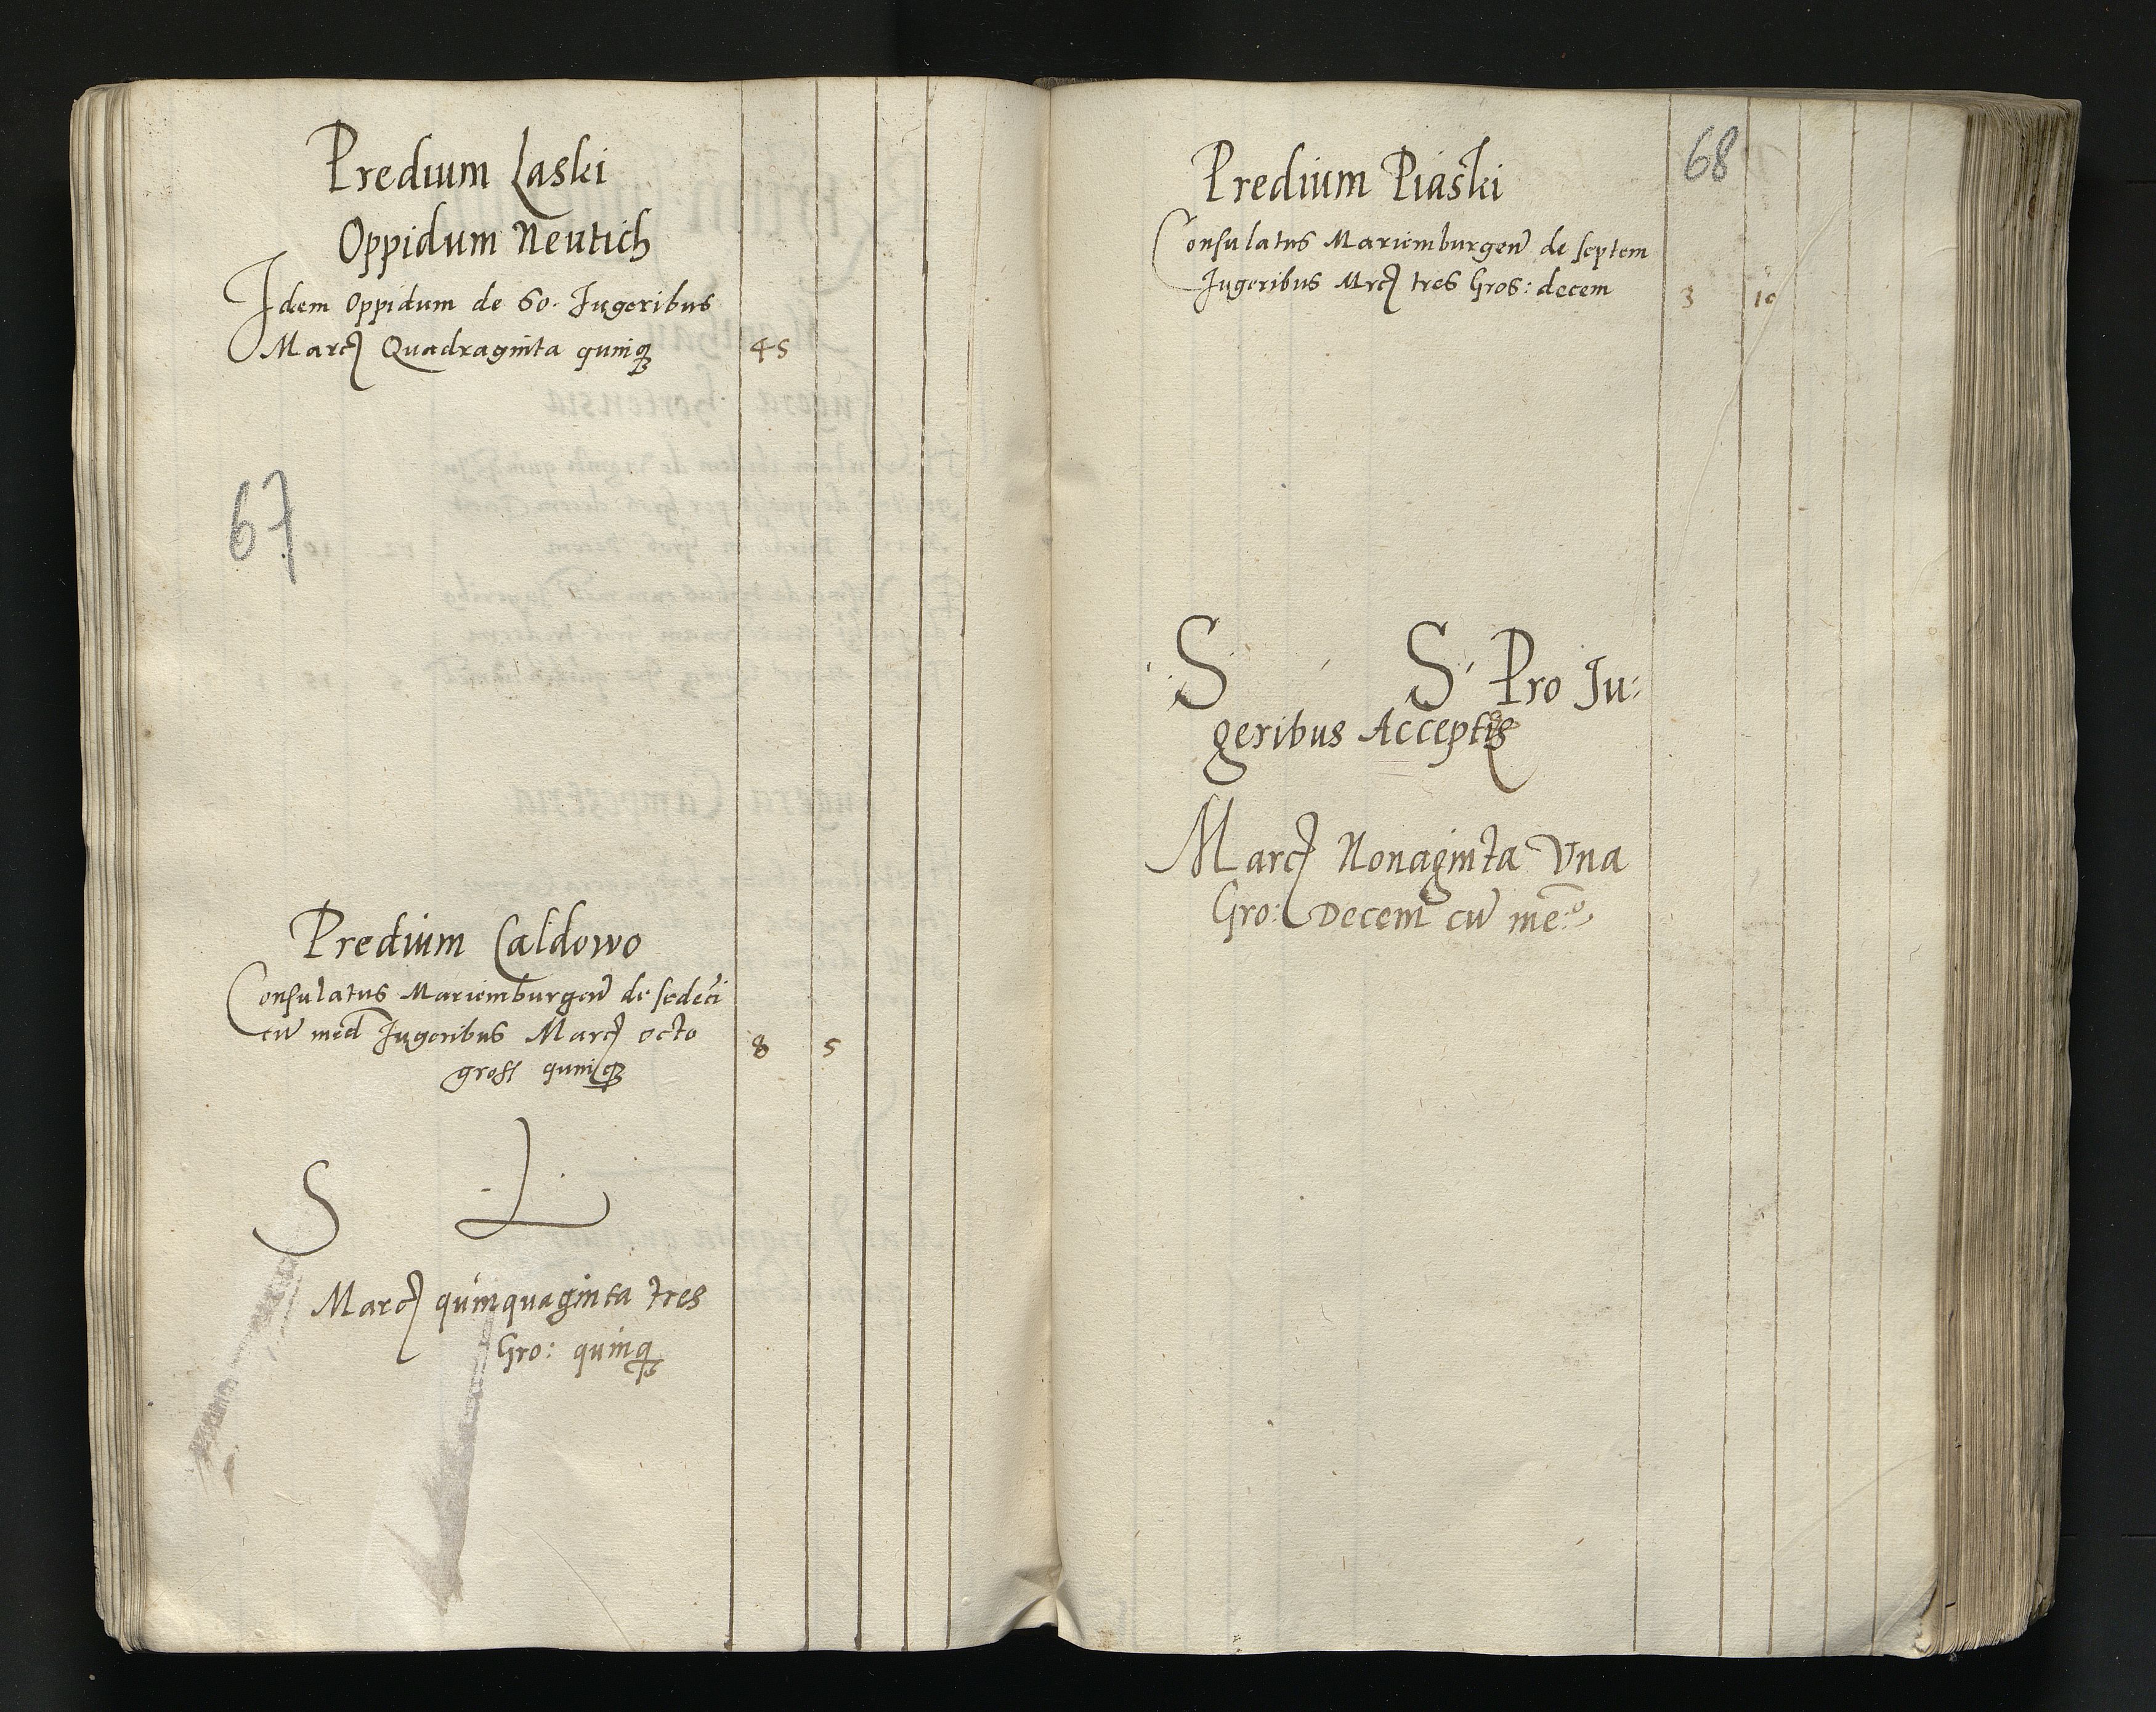 Predium Laski
Oppidum Neutich
Idem Oppidum de 60. Jugeribus
Marcę Quadraginta quinqꝫ 45
67
Predium Caldowo
Consulatus Mariemburgeñ de sedecī
cū med Jugeribus Marcę octo 8 5
gross quinqꝫ
S L
Marcę quinquaginta tres
Gro: quinqꝫ
68
Predium Piaski
Consulatus Mariemburgeñ de septem
Jugeribus Mrcę tres Gros: decem 3 10
S S Pro Ju:
geribus Acceptis
Marcę Nonaginta Vna
Gro: Decem cū me:o